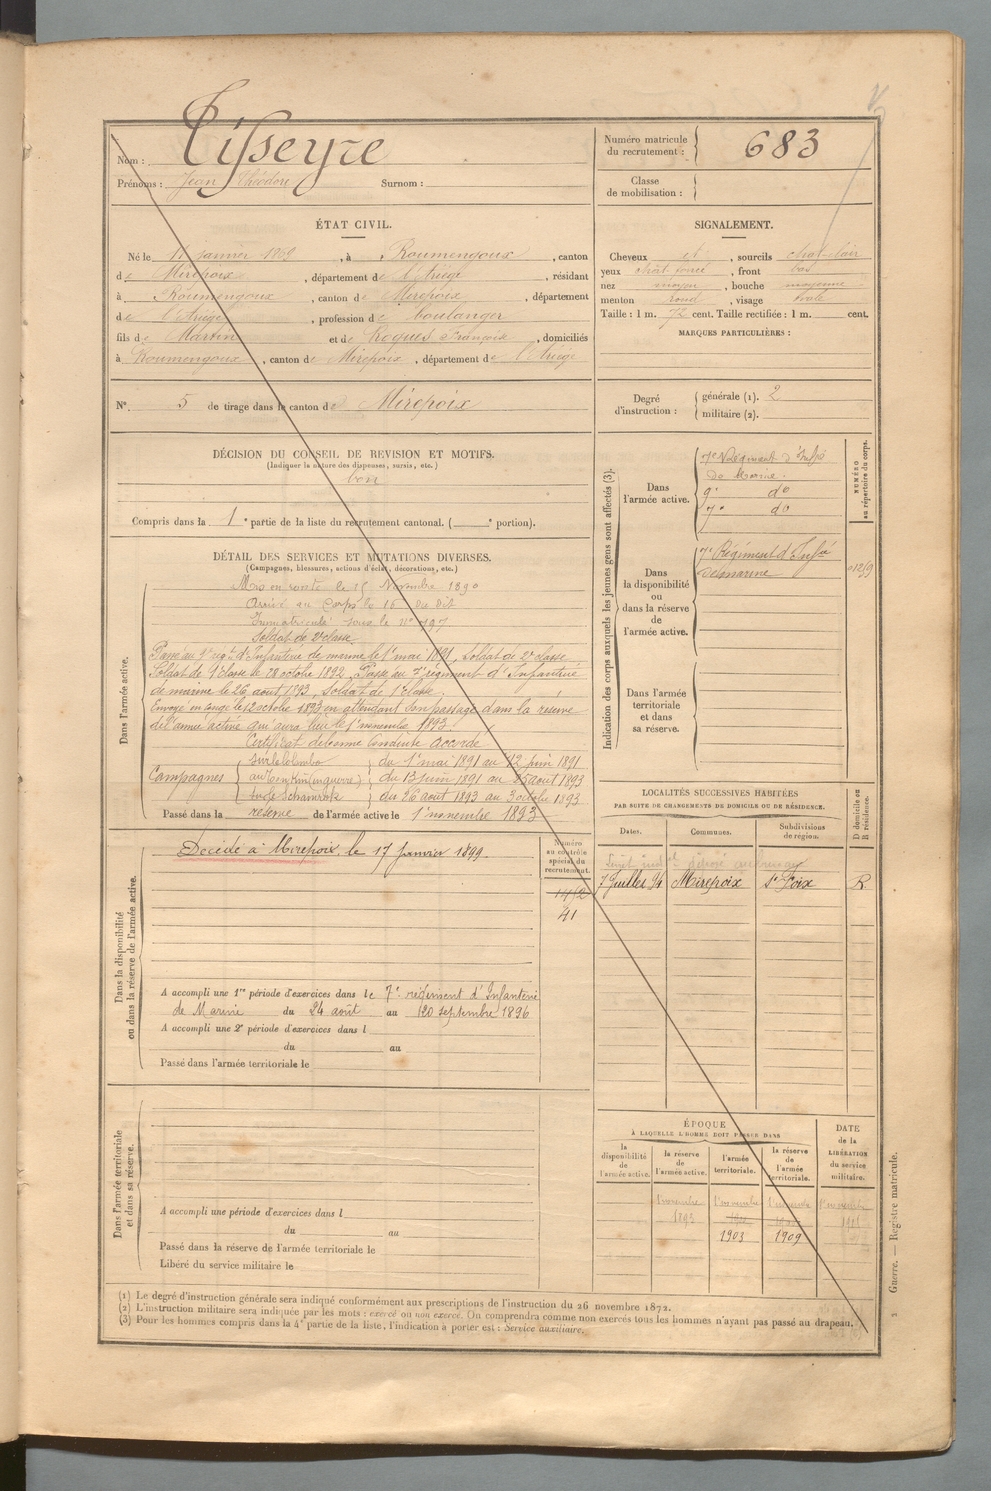 Nom : Tisseyre
Prénoms : Jean Théodore Surnom :
Numéro matricule du recrutement : 683
Classe de mobilisation :
ÉTAT CIVIL.
Né le janvier , à Roumengoux , canton
de Mirepoix , département de l'Ariège , résidant
à Roumengoux , canton de Mirepoix , département
de l'Ariège , profession de boulanger
fils de Martin et de Roques Françoise , domiciliés
à Roumengoux , canton de Mirepoix , département de l'Ariège
N° 5 de tirage dans le canton de Mirepoix
SIGNALEMENT.
Cheveux et , sourcils chat-clair
yeux chât. foncé , front bas
nez moyen , bouche moyenne
menton rond , visage ovale
Taille : 1 m. 72 cent. Taille rectifiée : 1 m. cent.
MARQUES PARTICULIÈRES :
Degré d'instruction : générale (1). 2
militaire (2).
DÉCISION DU CONSEIL DE REVISION ET MOTIFS.
(Indiquer la nature des dispenses, sursis, etc.)
bon
Compris dans la 1e partie de la liste du recrutement cantonal. ( e portion).
DÉTAIL DES SERVICES ET MUTATIONS DIVERSES.
(Campagnes, blessures, actions d'éclat, décorations, etc.)
Dans l'armée active.
Mis en route le 15 Novembre 1890
Arrivé au Corps le 16 du dit
Immatriculé sous le n°
Soldat de 2e classe
Passé au 9e régt d'Infanterie de marine le 1er mai 1891, Soldat de 2e classe
Soldat de 1e classe le 28 octobre 1892, Passé au 7e régiment d'Infanterie
de marine le 26 août 1893, Soldat de 1e classe.
Envoyé en congé le 12 octobre 1893 en attendant son passage dans la réserve
de l'armée active qui aura lieu le 1er novembre 1893.
Certificat de bonne Conduite accordé
Campagnes
sur le Colombo du 1er mai 1891 au 12 juin 1891
au Tonkin (en guerre) du 13 juin 1891 au 25 août 1893
sur le Schamrok du 26 août 1893 au 3 octobre 1893
Passé dans la réserve de l'armée active le 1er novembre 1893
Indication des corps auxquels les jeunes gens sont affectés (3).
NUMÉRO au répertoire du corps.
Dans l'armée active.
7e Régiment d'Infie
de Marine
9e do
7e do
Dans la disponibilité ou dans la réserve de l'armée active.
7e Régiment d'Infie
de marine
Dans l'armée territoriale et dans sa réserve.
Dans la disponibilité ou dans la réserve de l'armée active.
Décédé à Mirepoix, le 17 Janvier 1899
Numéro au contrôle spécial du recrutement.
41
A accompli une 1re période d'exercices dans le 7e régiment d'Infanterie
de Marine du 24 août au 20 septembre 1896
A accompli une 2e période d'exercices dans l
du au
Passé dans l'armée territoriale le
LOCALITÉS SUCCESSIVES HABITÉES
PAR SUITE DE CHANGEMENTS DE DOMICILE OU DE RÉSIDENCE.
Dates. Communes. Subdivisions de région. D domicile ou R résidence.
7 Juillet 94 Mirepoix St Foix R
Dans l'armée territoriale et dans sa réserve.
A accompli une période d'exercices dans l
du au
Passé dans la réserve de l'armée territoriale le
Libéré du service militaire le
ÉPOQUE
À LAQUELLE L'HOMME DOIT PASSER DANS
la disponibilité de l'armée active.
la réserve de l'armée active.
l'armée territoriale.
la réserve de l'armée territoriale.
DATE de la LIBÉRATION du service militaire.
1er novembre 1er novembre 1er novembre 1er novembre
1893
1903 1909
Guerre. — Registre matricule.
(1) Le degré d'instruction générale sera indiqué conformément aux prescriptions de l'instruction du 26 novembre 1872.
(2) L'instruction militaire sera indiquée par les mots : exercé ou non exercé. On comprendra comme non exercés tous les hommes n'ayant pas passé au drapeau.
(3) Pour les hommes compris dans la 4e partie de la liste, l'indication à porter est : Service auxiliaire.